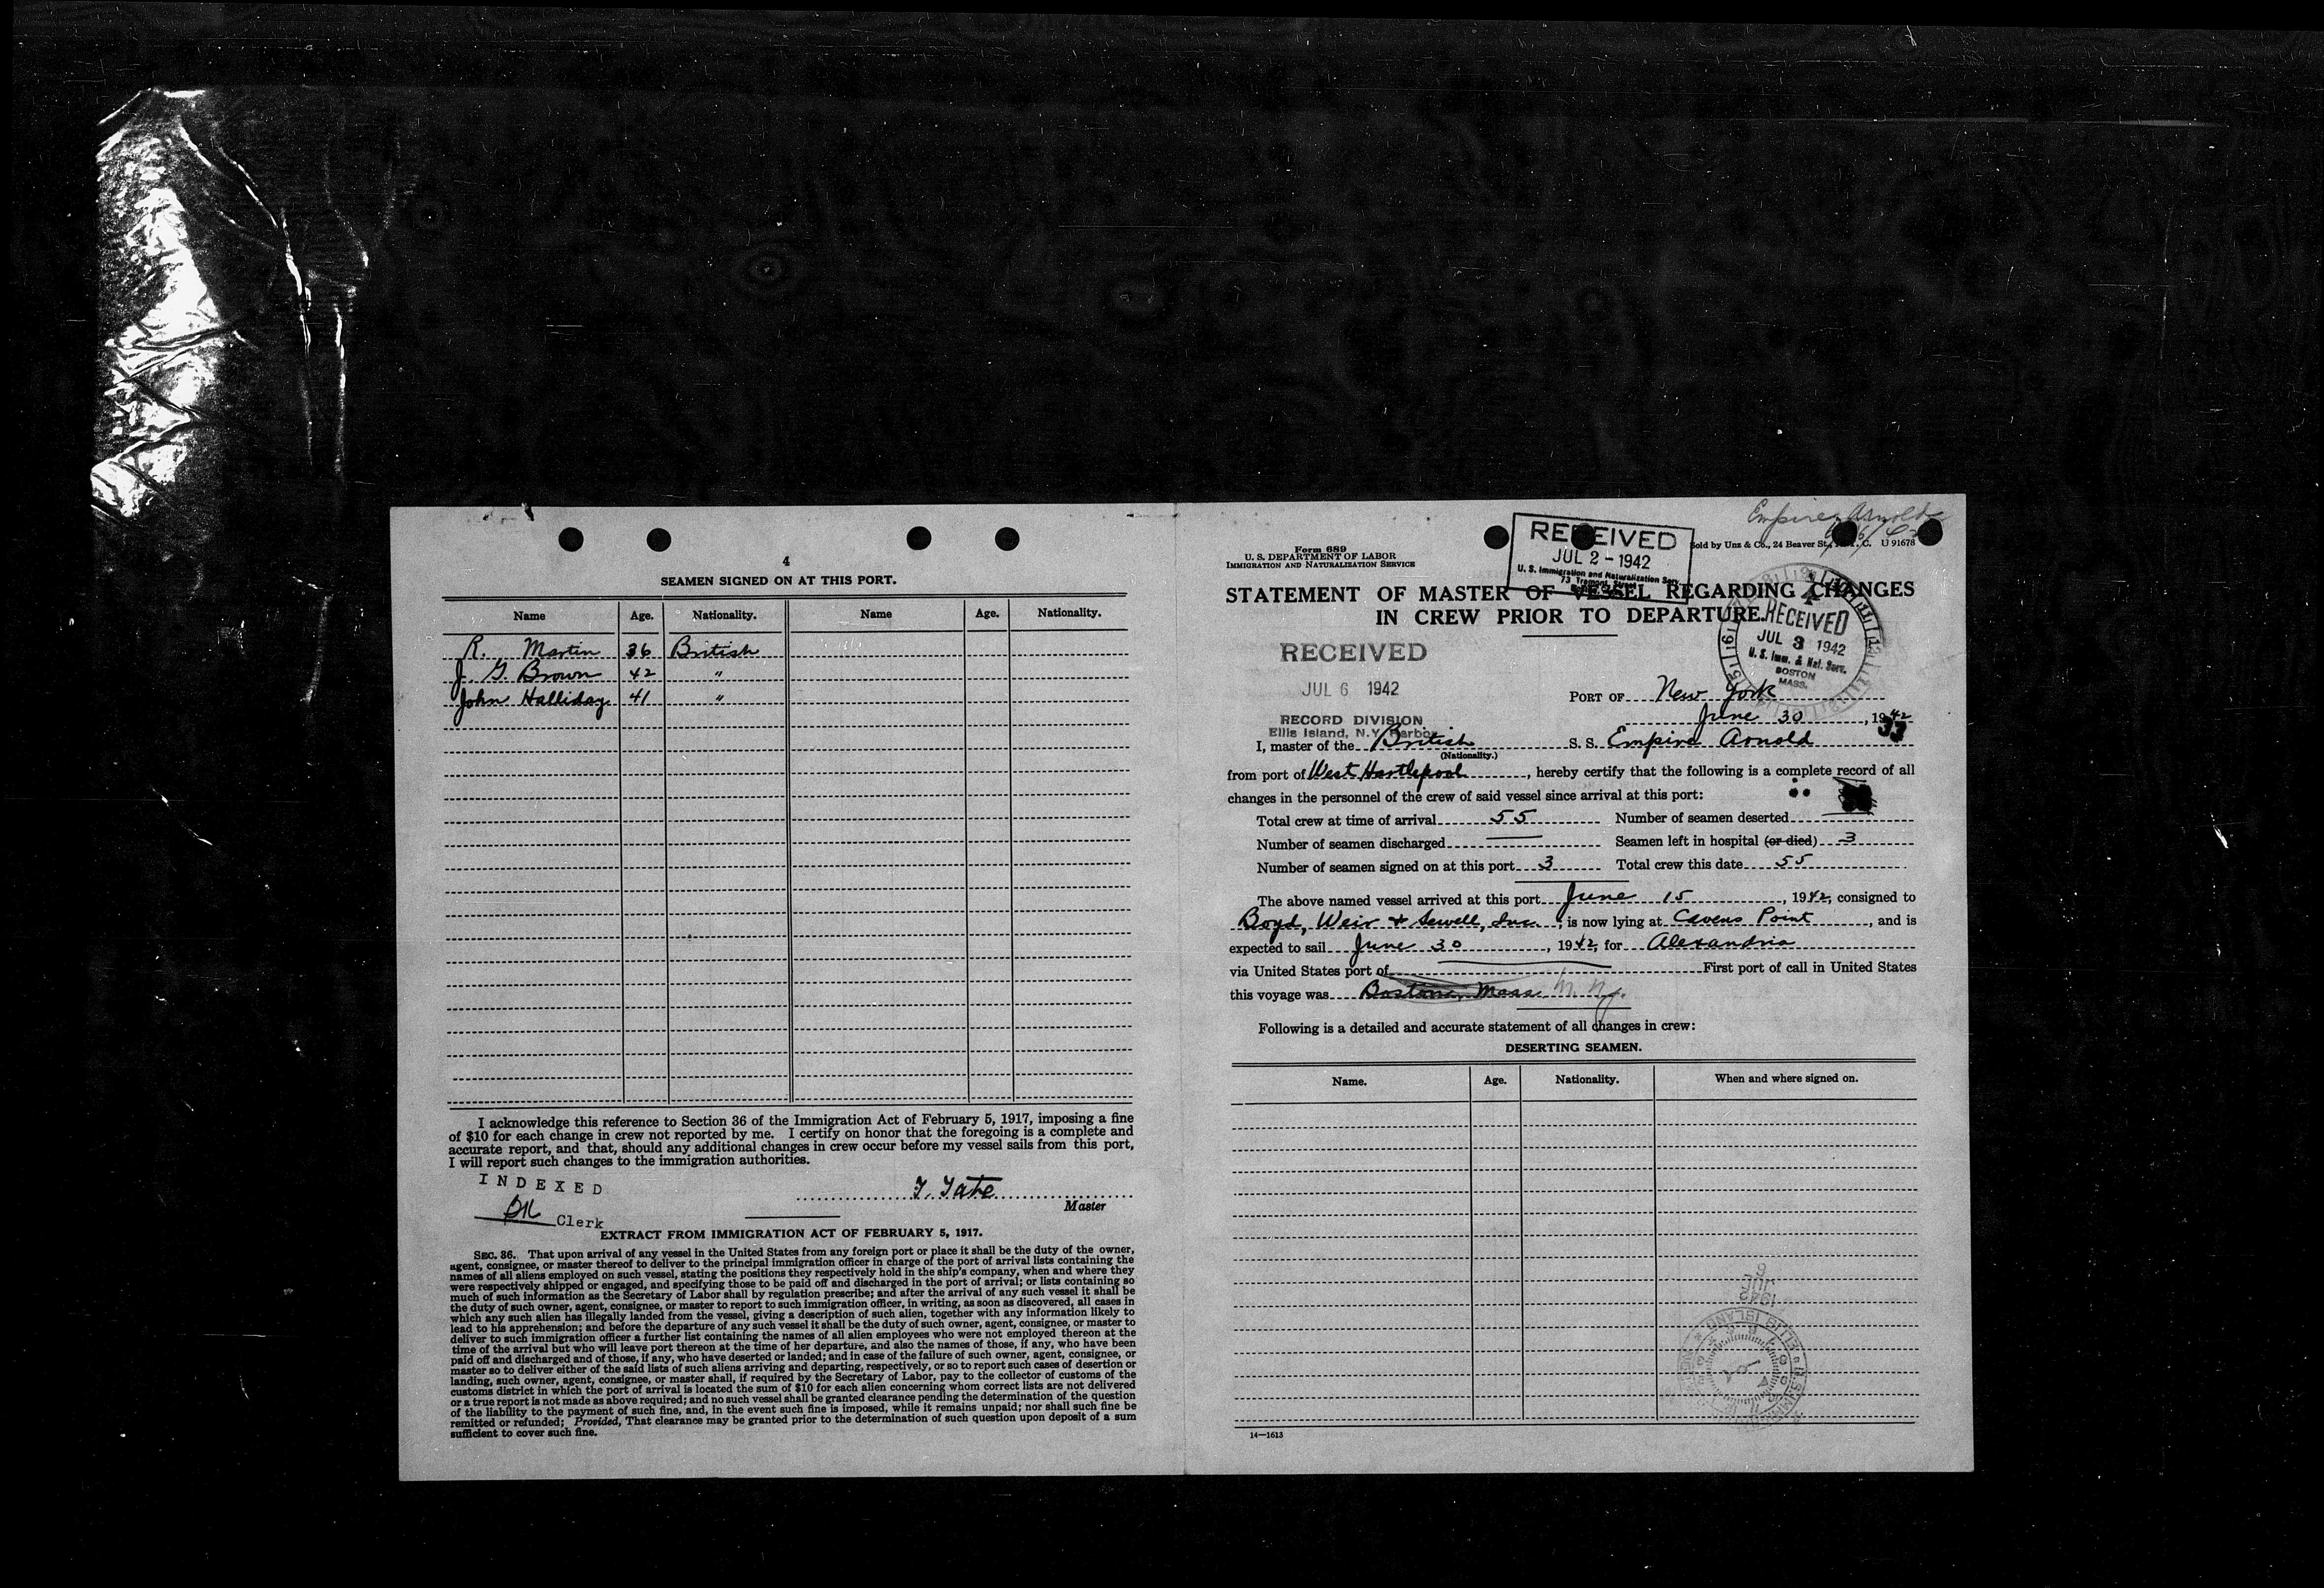 4
SEAMEN SIGNED ON AT THIS PORT.
Name Age. Nationality. Name Age. Nationality.
R. Martin 36 British
J. G. Brown 42 "
John Halliday 41 "
I acknowledge this reference to Section 36 of the Immigration Act of February 5, 1917, imposing a fine
of $10 for each change in crew not reported by me. I certify on honor that the foregoing is a complete and
accurate report, and that, should any additional changes in crew occur before my vessel sails from this port,
I will report such changes to the immigration authorities.
INDEXED
Clerk
T. Tate
Master
EXTRACT FROM IMMIGRATION ACT OF FEBRUARY 5, 1917.
SEC. 36. That upon arrival of any vessel in the United States from any foreign port or place it shall be the duty of the owner,
agent, consignee, or master thereof to deliver to the principal immigration officer in charge of the port of arrival lists containing the
names of all aliens employed on such vessel, stating the positions they respectively hold in the ship's company, when and where they
were respectively shipped or engaged, and specifying those to be paid off and discharged in the port of arrival; or lists containing so
much of such information as the Secretary of Labor shall by regulation prescribe; and after the arrival of any such vessel it shall be
the duty of such owner, agent, consignee, or master to report to such immigration officer, in writing, as soon as discovered, all cases in
which any such alien has illegally landed from the vessel, giving a description of such alien, together with any information likely to
lead to his apprehension; and before the departure of any such vessel it shall be the duty of such owner, agent, consignee, or master to
deliver to such immigration officer a further list containing the names of all alien employees who were not employed thereon at the
time of the arrival but who will leave port thereon at the time of her departure, and also the names of those, if any, who have been
paid off and discharged and of those, if any, who have deserted or landed; and in case of the failure of such owner, agent, consignee, or
master so to deliver either of the said lists of such aliens arriving and departing, respectively, or so to report such cases of desertion or
landing, such owner, agent, consignee, or master shall, if required by the Secretary of Labor, pay to the collector of customs of the
customs district in which the port of arrival is located the sum of $10 for each alien concerning whom correct lists are not delivered
or a true report is not made as above required; and no such vessel shall be granted clearance pending the determination of the question
of the liability to the payment of such fine, and, in the event such fine is imposed, while it remains unpaid; nor shall such fine be
remitted or refunded; Provided, That clearance may be granted prior to the determination of such question upon deposit of a sum
sufficient to cover such fine.
Empire Arnold
Form 689
U. S. DEPARTMENT OF LABOR
IMMIGRATION AND NATURALIZATION SERVICE
RECEIVED
JUL 2 - 1942
U. S. Immigration and Naturalization Serv.
73 Tremont Street
Sold by Unz & Co., 24 Beaver St., N. Y. C. U 91678
STATEMENT OF MASTER OF VESSEL REGARDING CHANGES
IN CREW PRIOR TO DEPARTURE.
RECEIVED
JUL 3 1942
U. S. Imm. & Nat. Serv.
BOSTON
MASS.
RECEIVED
JUL 6 1942
RECORD DIVISION
Ellis Island, N.Y. Harbor
PORT OF New York
June 30, 1942
33
I, master of the British S. S. Empire Arnold
(Nationality.)
from port of West Hartlepool, hereby certify that the following is a complete record of all
changes in the personnel of the crew of said vessel since arrival at this port:
Total crew at time of arrival 55 Number of seamen deserted
Number of seamen discharged Seamen left in hospital (or died) 3
Number of seamen signed on at this port 3 Total crew this date 55
The above named vessel arrived at this port June 15, 1942, consigned to
Boyd, Weir & Sewell, Inc., is now lying at Cavens Point, and is
expected to sail June 30, 1942, for Alexandria
via United States port of First port of call in United States
this voyage was Boston, Mass N. Y.
Following is a detailed and accurate statement of all changes in crew:
DESERTING SEAMEN.
Name. Age. Nationality. When and where signed on.
1942
JUL
6
14—1613